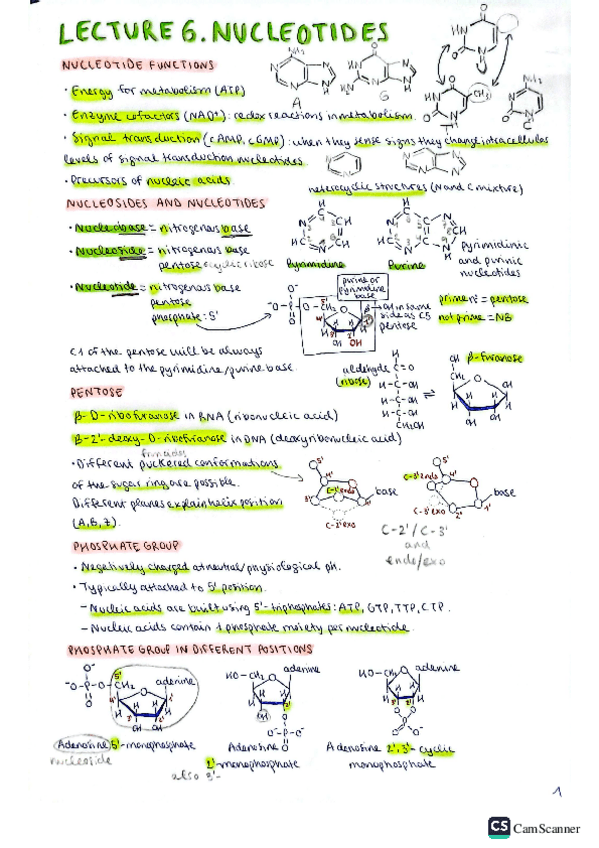 LECTURE 6. NUCLEOTIDES
NUCLEOTIDE FUNCTIONS
· Energy for metabolism (ATP)
· Enzyme cofactors (NAD⁺): redox reactions in metabolism.
· Signal transduction (cAMP, cGMP): when they sense signs they change intracellular
levels of signal transduction nucleotides.
· Precursors of nucleic acids
A
G
T
C
heterocyclic structures (N and C mixture)
NUCLEOSIDES AND NUCLEOTIDES
· Nucleobase = nitrogenous base
· Nucleotide = nitrogenous base
pentose
Pyrimidine
Purine
Pyrimidinic
and purinic
nucleotides
· Nucleotide = nitrogenous base
pentose
phosphate: 5'
purine or
pyrimidine
base
in same
side as C5
pentose
prime = pentose
not prime = NB
C1 of the pentose will be always
attached to the pyrimidine/purine base.
aldehyde
(ribose)
β-furanose
PENTOSE
β-D-ribofuranose in RNA (ribonucleic acid)
β-2'-deoxy-D-ribofuranose in DNA (deoxyribonucleic acid)
· Different puckered conformations
of the sugar ring are possible.
Different planes explain helix position
(A, B, Z).
C-2' endo
C-3' exo
base
C-3' endo
C-2' exo
base
C-2' / C-3'
and
endo/exo
PHOSPHATE GROUP
· Negatively charged at neutral/physiological ph.
· Typically attached to 5' position.
- Nucleic acids are built using 5'-triphosphates: ATP, GTP, TTP, CTP.
- Nucleic acids contain 1 phosphate moiety per nucleotide.
PHOSPHATE GROUP IN DIFFERENT POSITIONS
adenine
adenine
adenine
Adenosine 5'-monophosphate
nucleoside
Adenosine
2'-monophosphate
also 3'-
Adenosine 2', 3'-cyclic
monophosphate
1
CS CamScanner